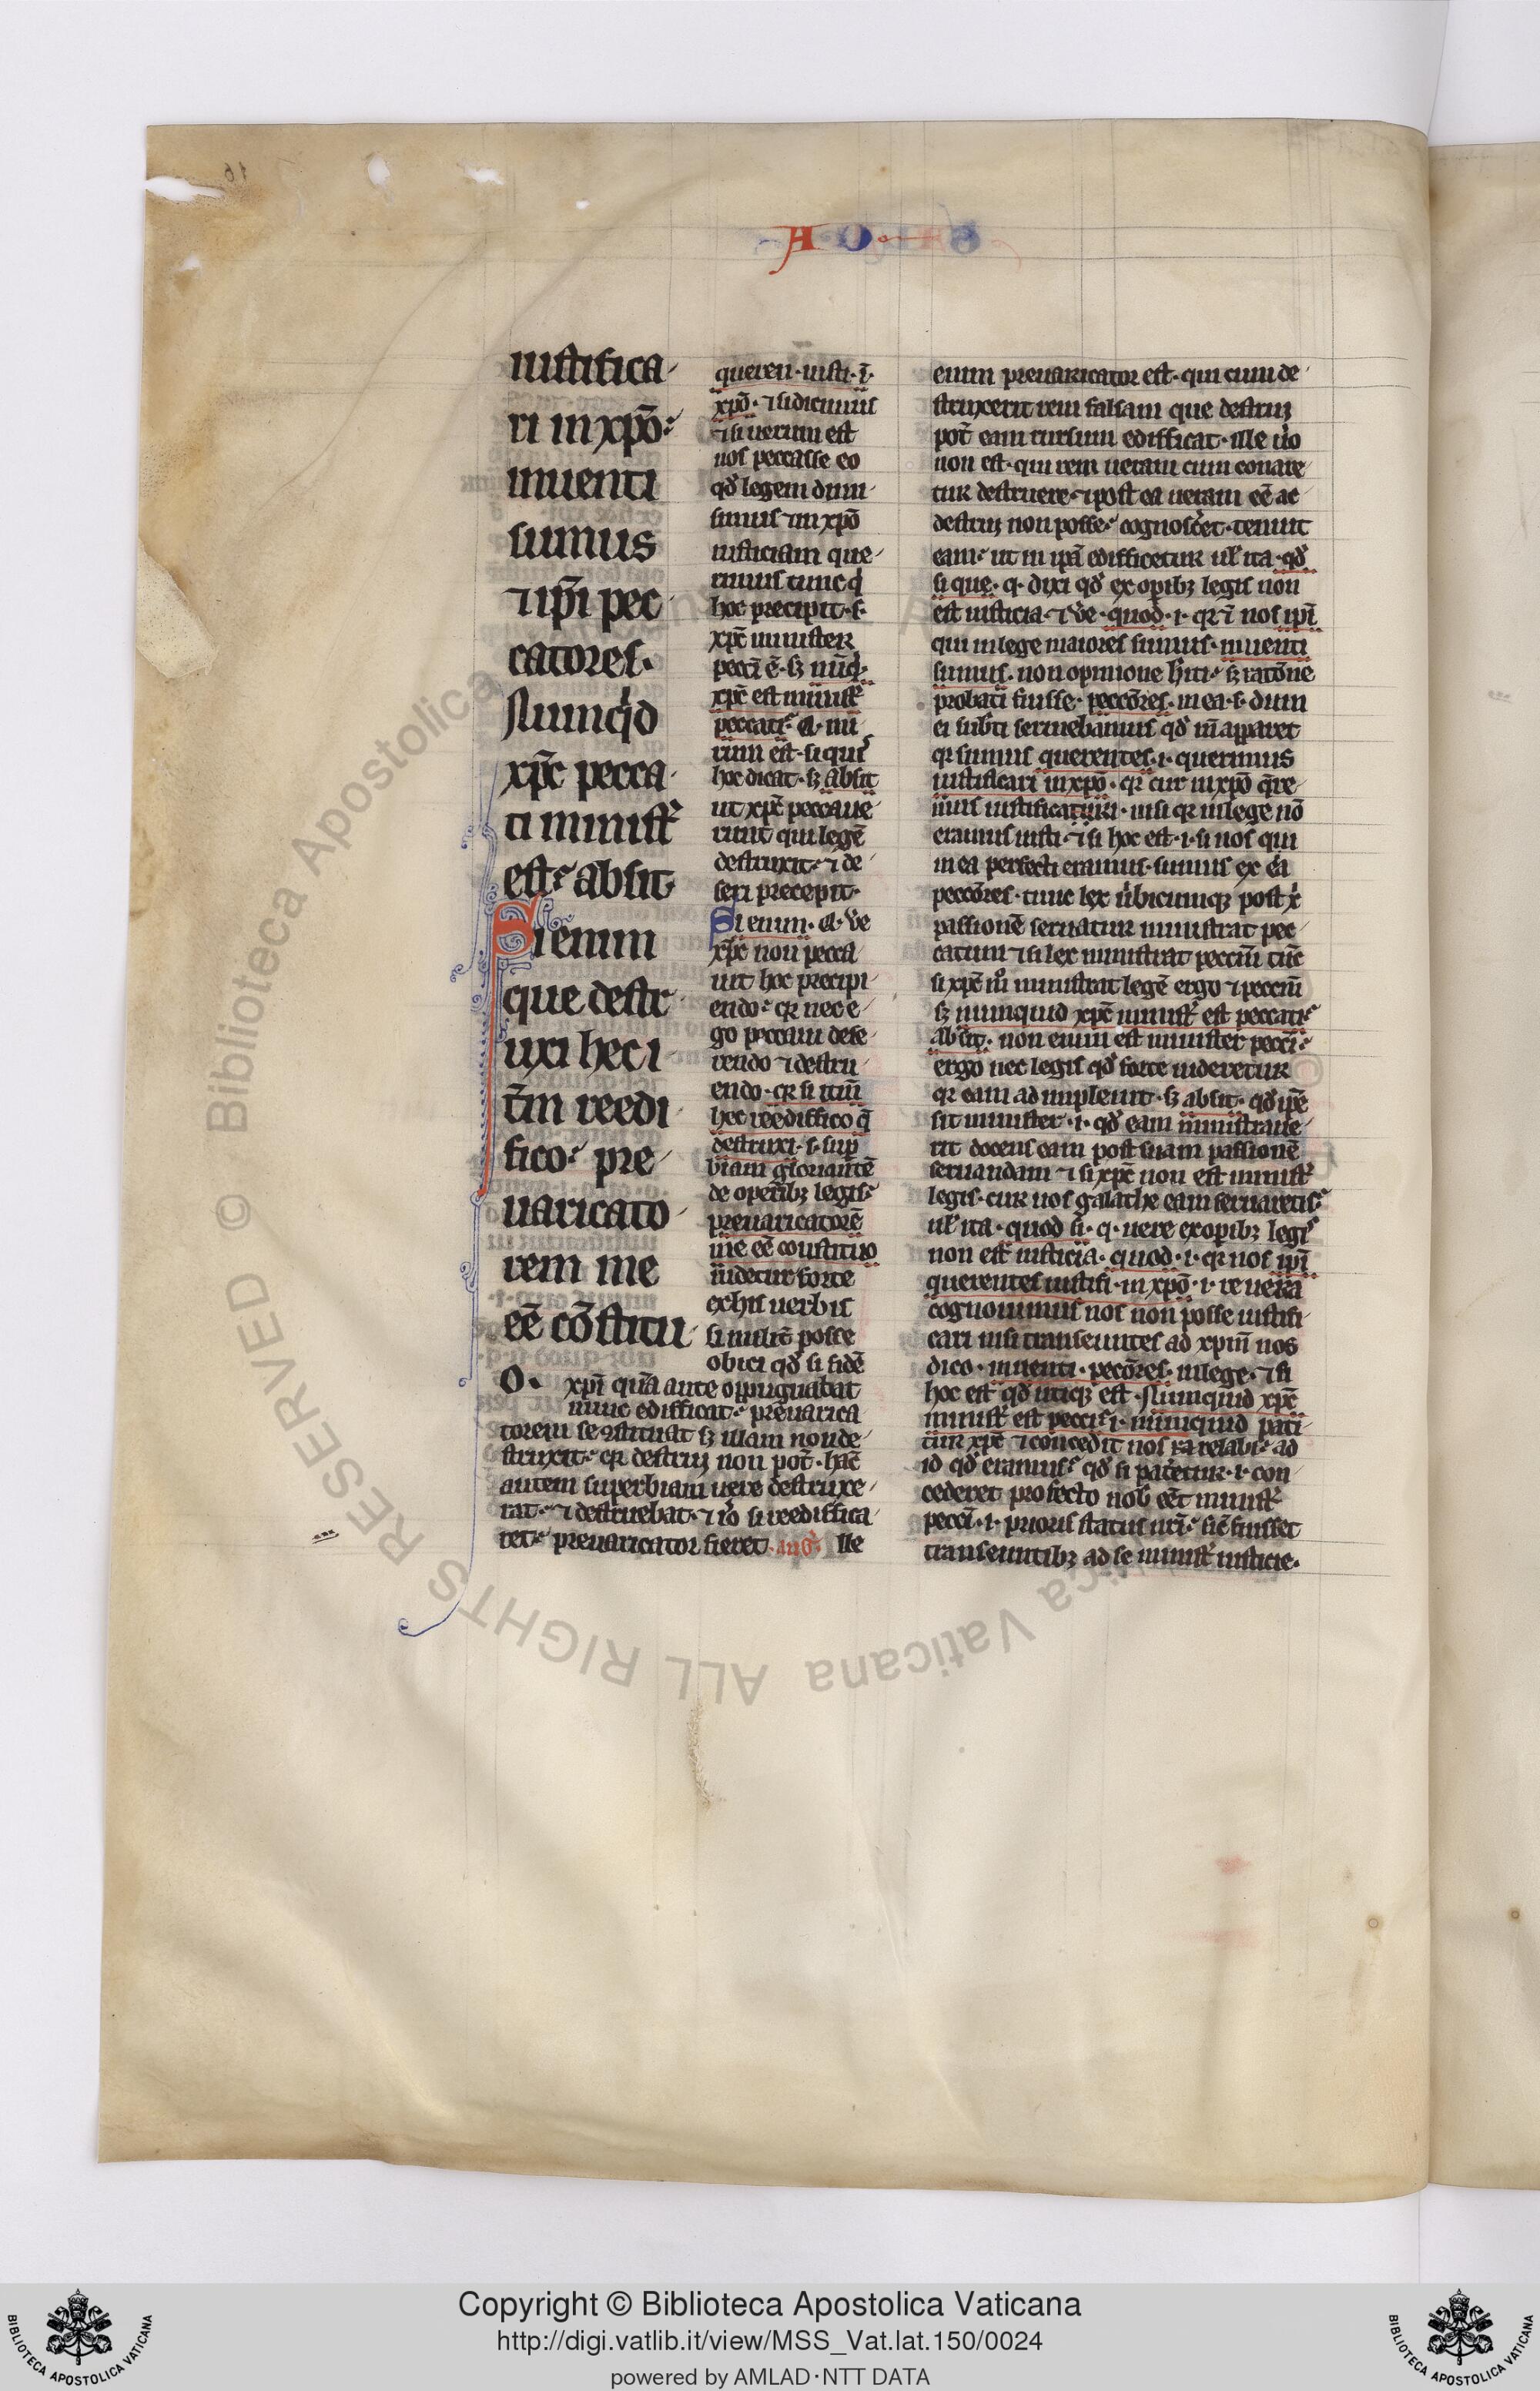 A D
iustifica
ri in xp̄o:
inuenti
sumus
⁊ ip̄i pec
catores.
Nunqͥd
xp̄c pecca
ti ministͬ
est? absit
Si enim
que destr
uxi hec i
t̄m reedi
fico: pre
uaricato
rem me
eē cōstitu
o.
quereń. iusti. ī.
xpō. ⁊ si dicimus
⁊ si uerum est
nos peccasse eo
qd̓ legem dimi
simus ⁊ in xpō
iusticiam que
rimus tunc qͥ
hoc precipit. s.
xpc̄ minister
pecci ē. sꝫ nūqͥ.
xpc̄ est ministͬ
peccati? q. mi
rum est. si quis
hoc dicat. sꝫ absit
ut xpc̄ peccaue
rit qui legē
destruxit. ⁊ de
seri precepit.
Si enim. q. de
xpc̄ non pecca
uit hoc precipi
endo. qꝛ nec e
go peccaui dese
rendo ⁊ destru
endo. qꝛ si itm̄
hec reediffico q̄
destruxi. s. sup
biam gloriantē
de operibꝫ legis.
preuaricatorē
me eē constituo
uidetur forte
ex his uerbis
simiĺr posse
obici qd̓ si fidē
xpī quā ante oppugnabat
nunc edifficat. preuarica
torem se ꝯstituat sꝫ illam non de
struxit. qꝛ destrui non pot̄. hāc
autem superbiam uere destruxe
rat. ⁊ destruebat. ⁊ iō si reediffica
ret. preuaricator fieret. aug̓. Ile
enim preuaricator est. qui cum de
struxerit rem falsam que destrui
pot̄ eam rursum edifficat. ille u̓o
non est. qui rem ueram cum conare
tur destruere ⁊ post ea ueram eē ac
destrui non posse. cognosc̓et. tenuit
eam. ut in ip̄a edifficetur. ul̓ ita. qd̓
si que. q. dixi qd̓ ex opibꝫ legis non
est iusticia. ⁊ ūe. quod. i. qꝛ ⁊ nos ip̄i
qui in lege maiores sumus. inuenti
sumus. non opinione h̓iti. sꝫ ratōne
probati fuisse. peccōres. in ea. s. dum
ei subiti seruiebamus qd̓ in̄ apparet
qꝛ sumus querentes. i. querimus
iustificari in xpō. qꝛ cur in xpō q̄re
mus iustificaturi. nisi qꝛ in lege nō
eramus iusti. ⁊ si hoc est. i. si nos qui
in ea perfecti eramus. sumus ex ea
peccōres. tunc lex ubicumqꝫ post xͥ
passionē seruatur ministrat pec
catum ⁊ si lex ministrat peccm̄ tūc
si xpc̄ m̊ ministrat legē ergo ⁊ peccm̄
sꝫ nunquid xpc̄ ministͬ est peccati?
absit. non enim est minister pecci.
ergo nec legis qd̓ forte uideretur
qꝛ eam adimpleuit. sꝫ absit. qd̓ ip̄e
sit minister. i. qd̓ eam ministraue
rit docens eam post suam passionē
seruandam ⁊ si xpc̄ non est ministͬ
legis. cur uos galathe eam seruaretis?
ul̓ ita. quod si. q. uere ex opibꝫ legis
non est iusticia. quod. i. qꝛ nos ip̄i
querentes iustifi. in xpō. i. re uera
cognouimus nos non posse iustifi
cari nisi transeuntes ad xpm̄ nos
dico. inuenti. pecōres. in lege. ⁊ si
hoc est qd̓ utiqꝫ est. Nunquid xpc̄
ministͬ est pecci? i. nunquid pati
tur xpc̄ ⁊ concedit nos relabi. ad
id qd̓ eramus? qd̓ si pateretur. i. con
cederet profecto nob̓ eēt ministͬ
pecci. i. prioris status nr̄i. sic̄ fuisset
transeuntibꝫ ad se ministͬ iusticie.
Biblioteca Apostolica Vaticana ALL RIGHTS RESERVED ©
Copyright © Biblioteca Apostolica Vaticana
http://digi.vatlib.it/view/MSS_Vat.lat.150/0024
powered by AMLAD·NTT DATA
BIBLIOTECA APOSTOLICA VATICANA
BIBLIOTECA APOSTOLICA VATICANA